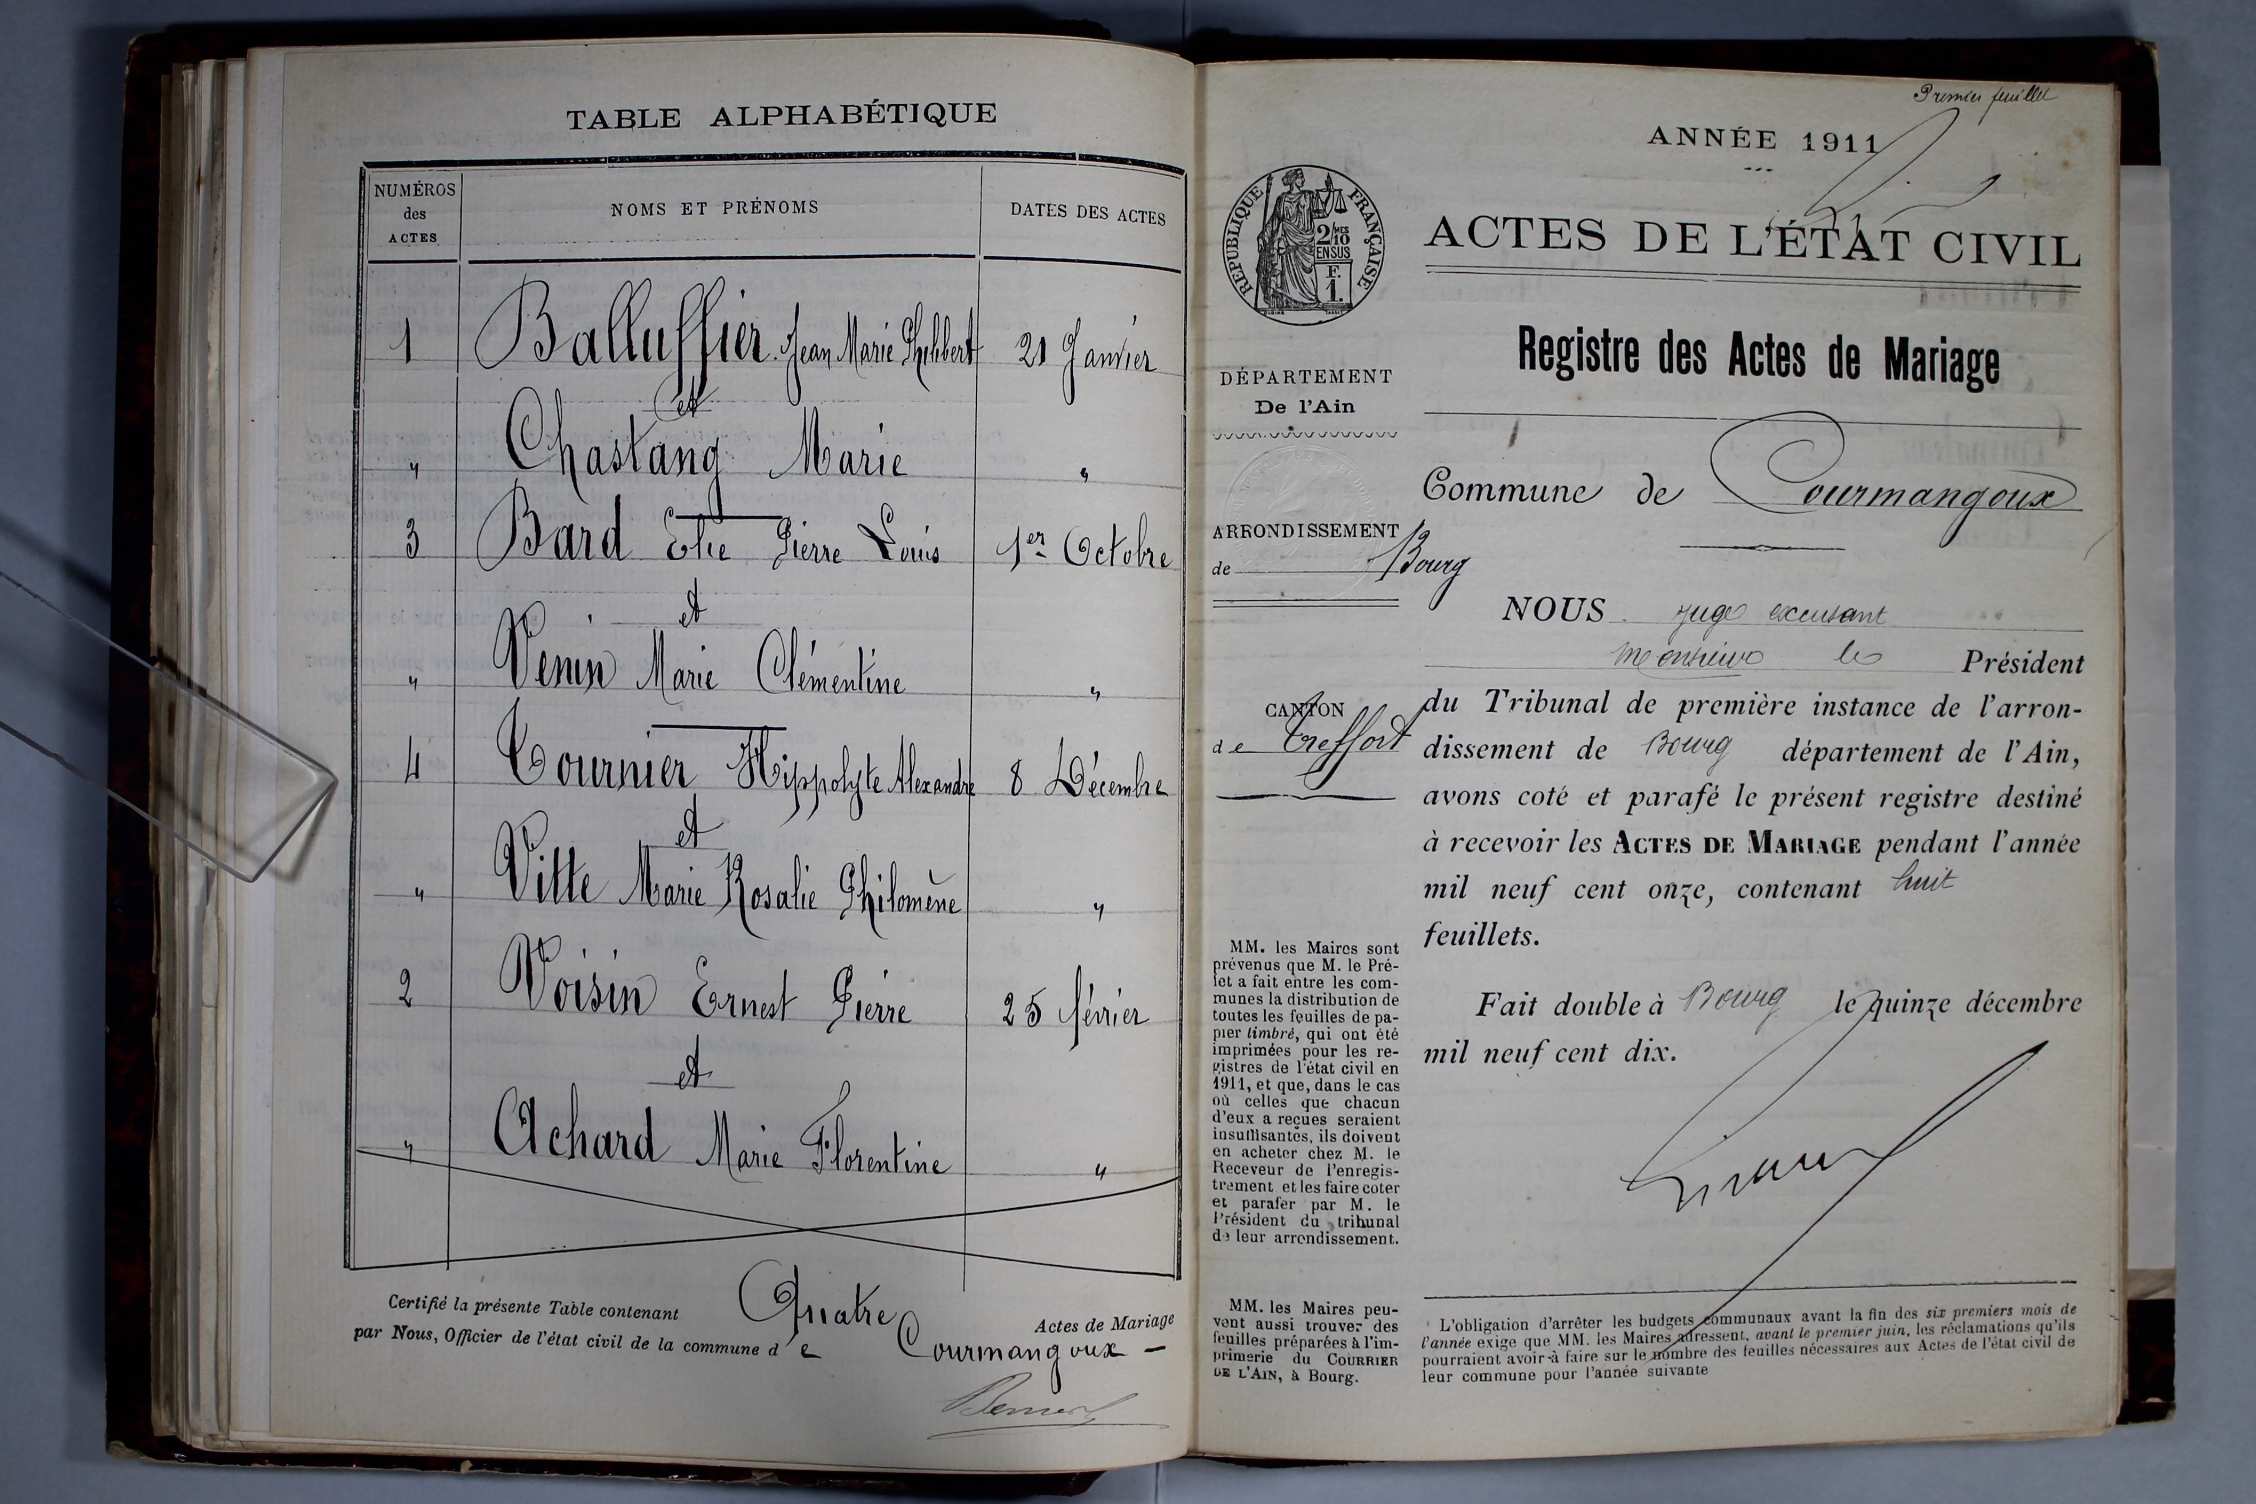 TABLE ALPHABÉTIQUE
NUMÉROS
des
ACTES
NOMS ET PRÉNOMS
DATES DES ACTES
1 Balluffier Jean Marie Philibert 21 Janvier
et
" Chastang Marie "
3 Bard Elie Pierre Louis 1er Octobre
et
" Venin Marie Clémentine "
4 Tournier Hippolyte Alexandre 8 Décembre
et
" Vitte Marie Rosalie Philomène "
2 Voisin Ernest Pierre 25 février
et
" Achard Marie Florentine "
Certifié la présente Table contenant Quatre Actes de Mariage
par Nous, Officier de l'état civil de la commune de Courmangoux
Premier feuillet
ANNÉE 1911
ACTES DE L'ÉTAT CIVIL
Registre des Actes de Mariage
RÉPUBLIQUE FRANÇAISE
2/10 MES
EN SUS
F.
1.
DÉPARTEMENT
De l'Ain
ARRONDISSEMENT
de Bourg
CANTON
de Treffort
MM. les Maires sont
prévenus que M. le Pré-
fet a fait entre les com-
munes la distribution de
toutes les feuilles de pa-
pier timbré, qui ont été
imprimées pour les re-
gistres de l'état civil en
1911, et que, dans le cas
où celles que chacun
d'eux a reçues seraient
insuffisantes, ils doivent
en acheter chez M. le
Receveur de l'enregis-
trement et les faire coter
et parafer par M. le
Président du tribunal
de leur arrondissement.
MM. les Maires peu-
vent aussi trouver des
feuilles préparées à l'im-
primerie du COURRIER
DE L'AIN, à Bourg.
Commune de Courmangoux
NOUS juge excusant
Monsieur le Président
du Tribunal de première instance de l'arron-
dissement de Bourg département de l'Ain,
avons coté et parafé le présent registre destiné
à recevoir les ACTES DE MARIAGE pendant l'année
mil neuf cent onze, contenant huit
feuillets.
Fait double à Bourg le quinze décembre
mil neuf cent dix.
L'obligation d'arrêter les budgets communaux avant la fin des six premiers mois de
l'année exige que MM. les Maires adressent, avant le premier juin, les réclamations qu'ils
pourraient avoir à faire sur le nombre des feuilles nécessaires aux Actes de l'état civil de
leur commune pour l'année suivante